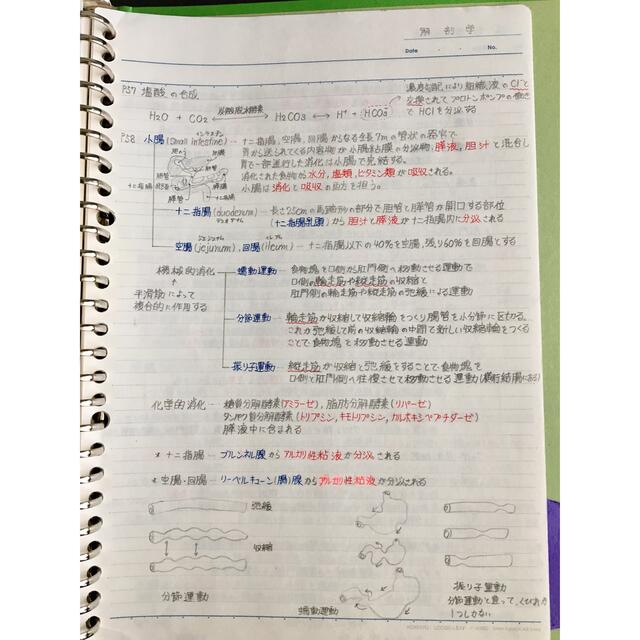 解剖学
Date . . No.
P57 塩酸の合成
炭酸脱水酵素
H₂O + CO₂ ⇄ H₂CO₃ ⟷ H⁺ + HCO₃⁻
濃度勾配により組織液のCl⁻と
交換されてプロトンポンプの働き
でHClを分泌する
P58 小腸(Small intestine) ― 十二指腸、空腸、回腸からなる全長7mの管状の器官で
胃から送られてくる内容物が小腸粘膜の分泌物、膵液、胆汁と混合し
胃で一部進行した消化は小腸で完結する。
消化された食物が水分、塩類、ビタミン類が吸収される。
小腸は消化と吸収の両方を担う。
胆のう
肝管
胆管
十二指腸
膵管
十二指腸(duodenum) ― 長さ25cmの馬蹄形の部分で胆管と膵管が開口する部位
(十二指腸乳頭)から胆汁と膵液が十二指腸内に分泌される
空腸(jejunum)、回腸(Ileum) ― 十二指腸以下の40%を空腸、残り60%を回腸とする
機械的消化
平滑筋によって
複合的に作用する
蠕動運動 ― 食物塊を口側から肛門側へ移動させる運動で
口側の輪走筋や縦走筋の収縮と
肛門側の輪走筋や縦走筋の弛緩による運動
分節運動 ― 輪走筋が収縮して収縮輪をつくり腸管を小分節に区切る。
これが弛緩して前の収縮輪の中間で新しい収縮輪をつくる
ことで食物塊を移動させる運動
振り子運動 ― 縦走筋が収縮と弛緩をすることで食物塊を
口側と肛門側へ往復させて移動させる運動
化学的消化 ― 糖質分解酵素(アミラーゼ)、脂肪分解酵素(リパーゼ)
タンパク質分解酵素(トリプシン、キモトリプシン、カルボキシペプチダーゼ)
膵液中に含まれる
* 十二指腸 ― ブルンネル腺からアルカリ性粘液が分泌される
* 空腸・回腸 ― リーベルキューン(腸)腺からアルカリ性粘液が分泌される
弛緩
収縮
分節運動
蠕動運動
振り子運動
分節運動と違って、くびれが
1つしかない